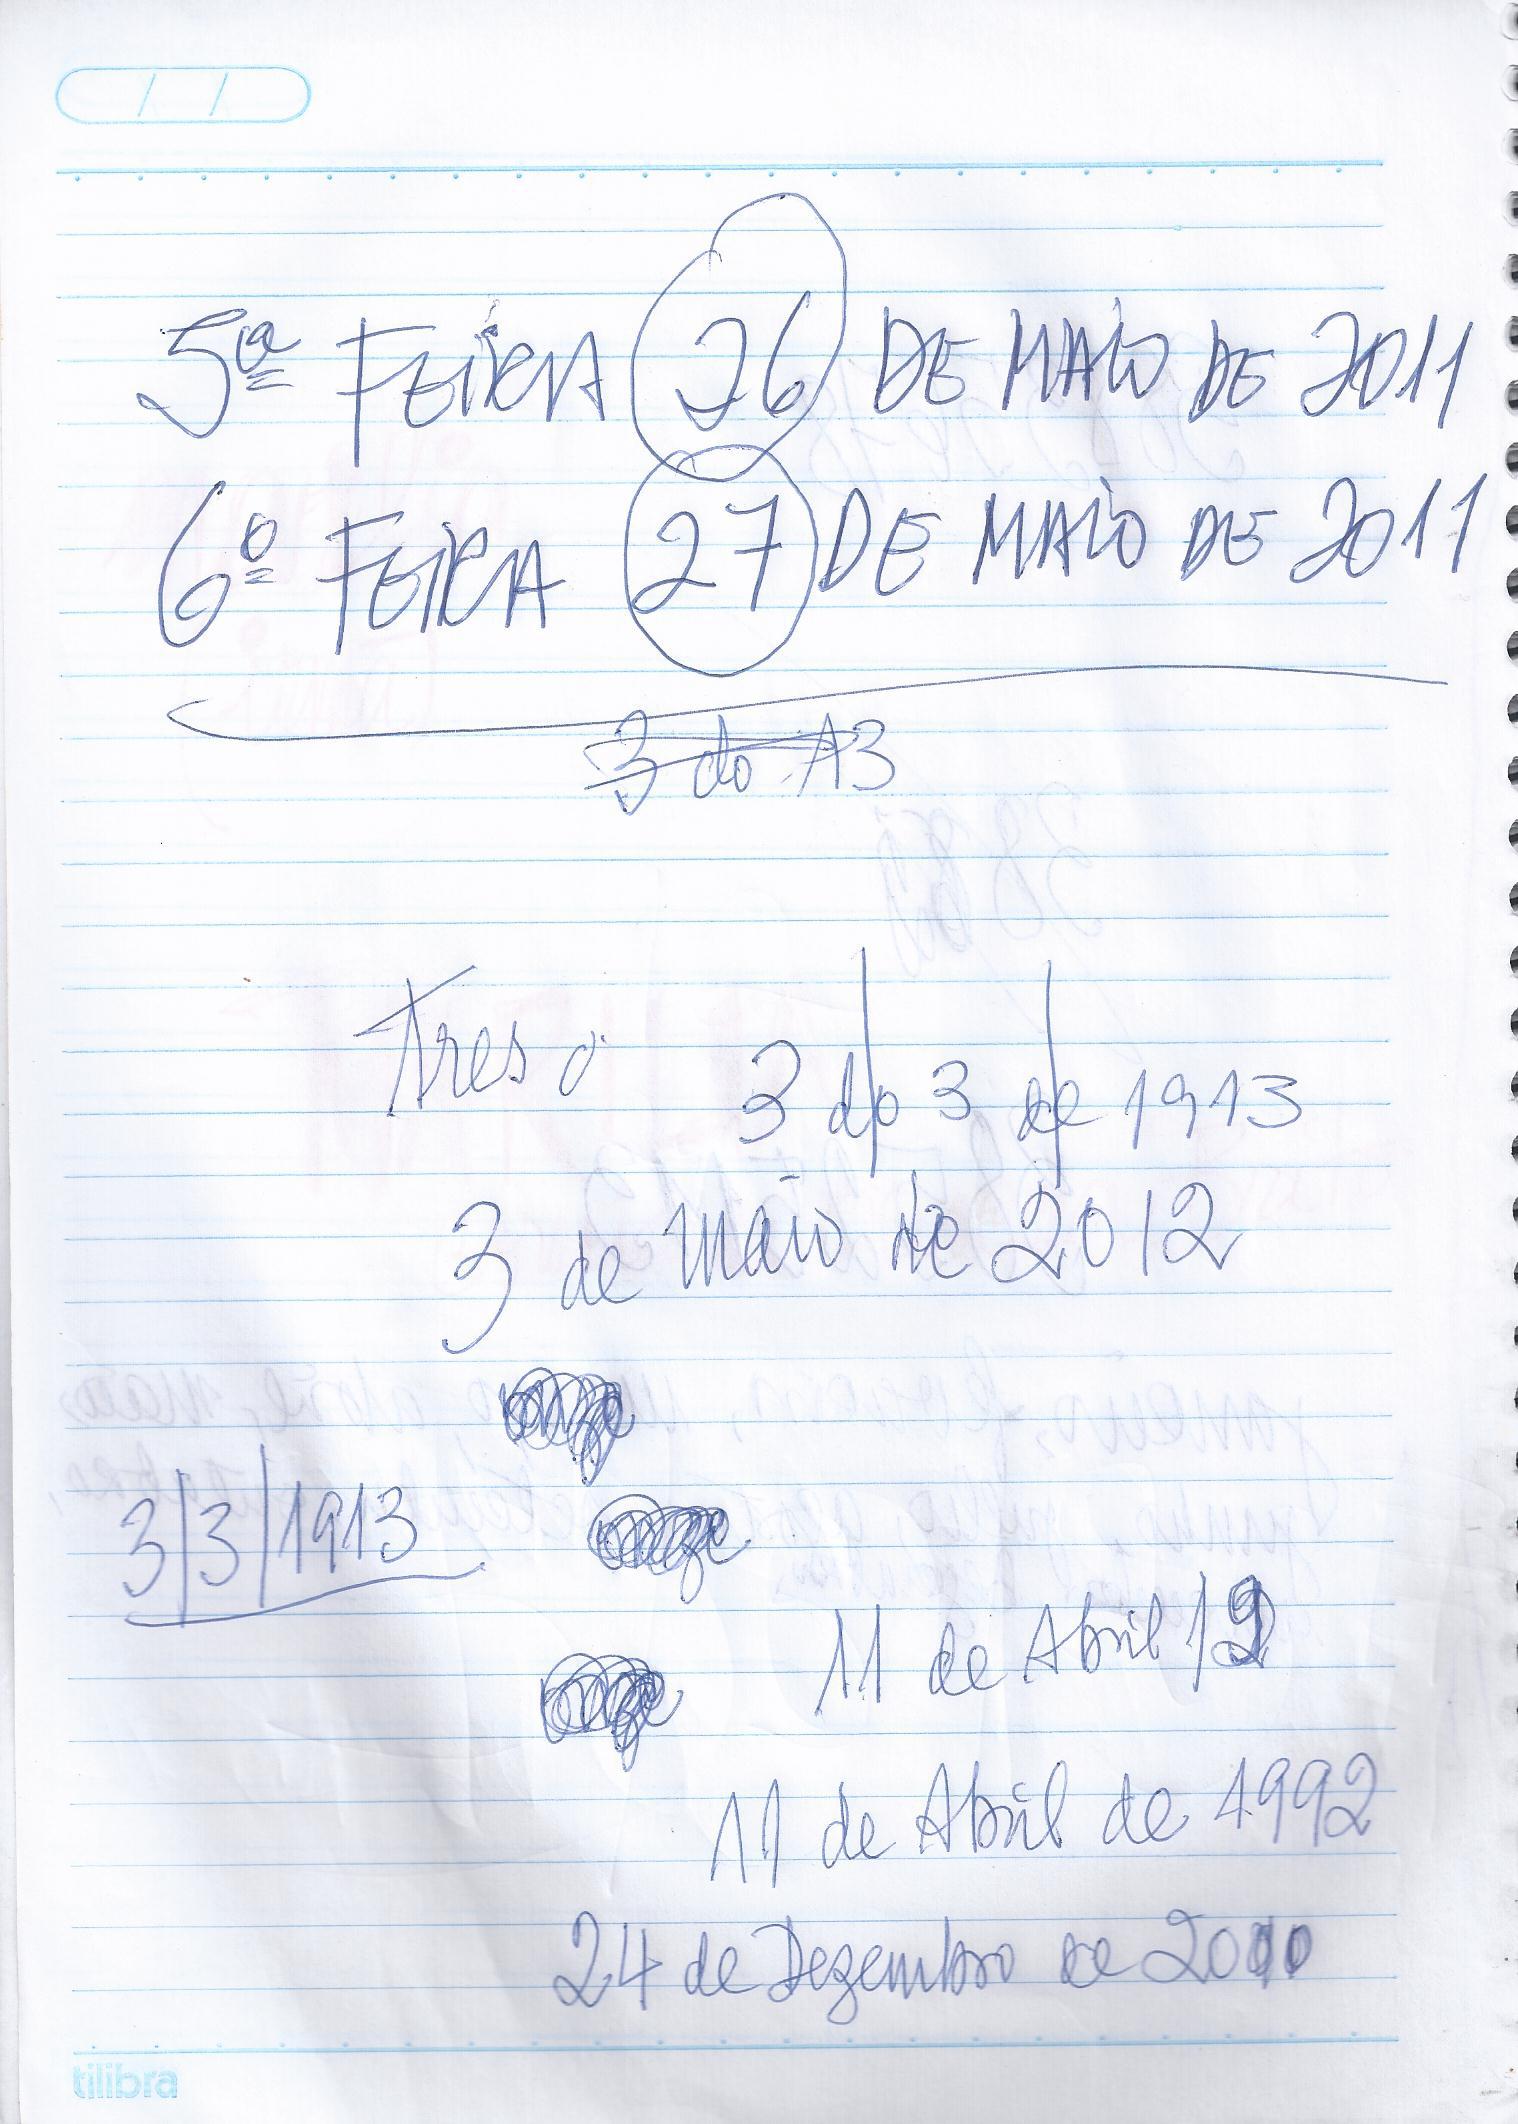 5ª FEIRA 26 DE MAIO DE 2011
6º FEIRA 27 DE MAIO DE 2011
3 do A3
Tres o 3 do 3 de 1913
3 de maio de 2012
onze
3/3/1913
onze
11 de Abril 12
onze
11 de Abril de 1992
24 de Dezembro de 2010
tilibra